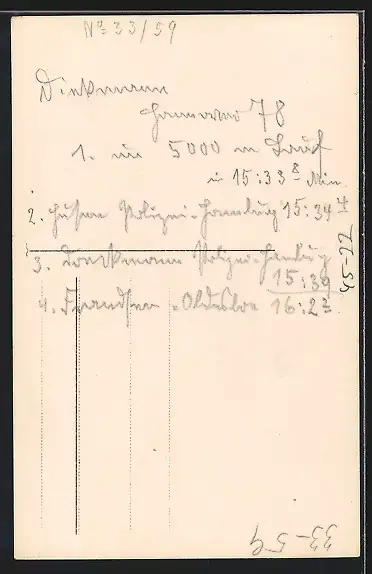 No 33/59
Diekmann
Hannover 78
1. im 5000 m Lauf
in 15:33⁸ Min.
2. Husen Polizei-Hamburg 15:34⁴
3. Brackmann Polizei-Hamburg
15:39
4. Frandsen - Oldesloe 16:2²
45-22
33-59